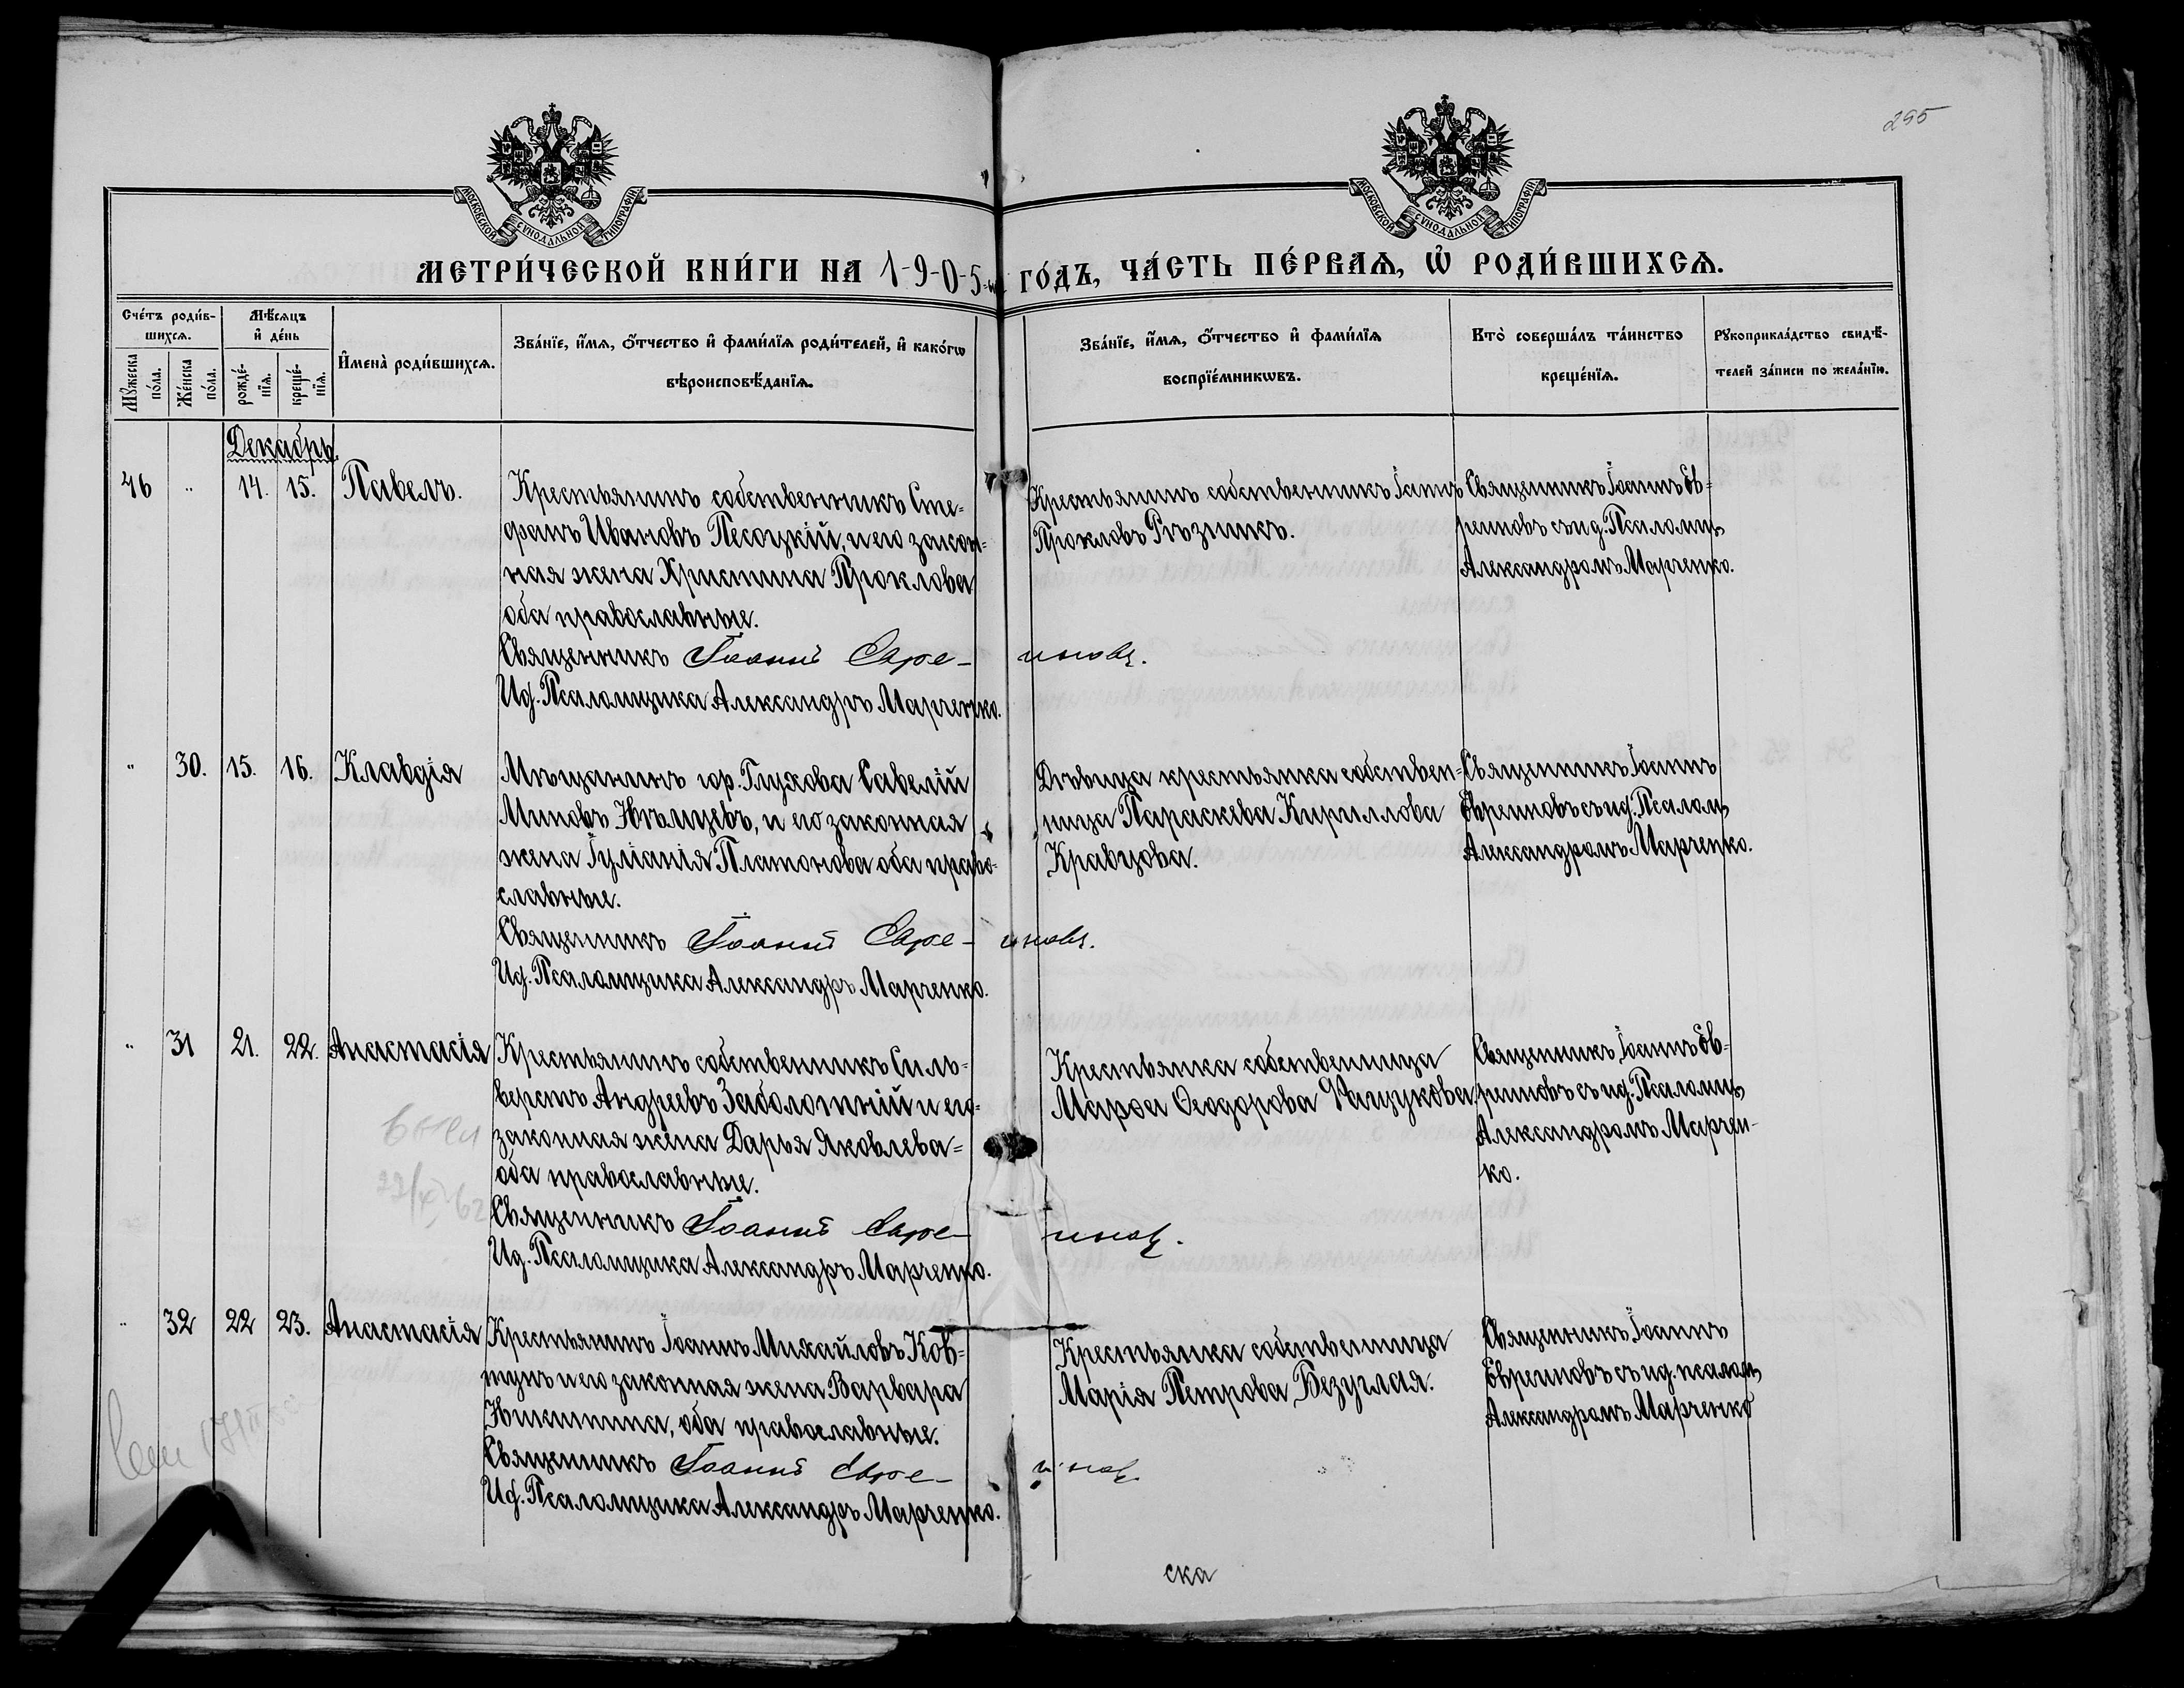 295
МОСКОВСКОЙ СѴНОДАЛЬНОЙ ТИПОГРАФІИ
МОСКОВСКОЙ СѴНОДАЛЬНОЙ ТИПОГРАФІИ
МЕТРИ́ЧЕСКОЙ КНИ́ГИ НА 1-9-0-5=й ГО́ДЪ, ЧА́СТЬ ПЕ́РВАѦ, Ѡ҆ РОДИ́ВШИХСѦ.
Сче́тъ роди́в-
шихсѧ.
Мѣ́сѧцъ
и҆ де́нь
Мꙋ́жеска по́ла.
Же́нска по́ла.
рожде́-нїѧ.
креще́-нїѧ.
И҆мена̀ роди́вшихсѧ.
Зва́нїе, и҆́мѧ, ѻ҆́тчество и҆ фами́лїѧ роди́телей, и҆ како́гѡ
вѣроисповѣ́данїѧ.
Зва́нїе, и҆́мѧ, ѻ҆́тчество и҆ фами́лїѧ
воспрїе́мникѡвъ.
Кто̀ соверша́лъ та́инство
креще́нїѧ.
Рꙋкоприкла́дство свидѣ́-
телей за́писи по жела́нїю.
Декабрь.
46 " 14. 15. Павелъ.
Крестьянинъ собственникъ Сте=
фанъ Ивановъ Песоцкій, и его закон=
ная жена Христина Проклова
оба православные.
Священникъ Іоаннъ Евре-иновъ.
Ид. Псаломщика Александръ Марченко.
Крестьянинъ собственникъ Іоаннъ
Прокловъ Рѣзникъ.
Священникъ Іоаннъ Ев=
реиновъ съ ид. Псаломщ.
Александромъ Марченко.
" 30. 15. 16. Клавдія
Мѣщанинъ гор. Глухова Савелій
Миновъ Нѣмцевъ, и его законная
жена Іуліанія Платонова оба право-
славные.
Священникъ Іоаннъ Евре-иновъ.
Ид. Псаломщика Александръ Марченко.
Дѣвица крестьянка собствен=
ница Параскева Кириллова
Кравцова.
Священникъ Іоаннъ
Евреиновъ съ ид. Псалом.
Александромъ Марченко.
" 31 21. 22. Анастасія
Крестьянинъ собственникъ Силь=
верстъ Андреевъ Заболотній и его=
законная жена Дарья Яковлева=
оба православные.
Священникъ Іоаннъ Евре-иновъ.
Ид. Псаломщика Александръ Марченко.
Крестьянка собственница
Марѳа Ѳеодорова
Священникъ Іоаннъ Ев=
реиновъ съ ид. Псаломщ.
Александромъ Марчен-
ко.
" 32 22 23. Анастасія
Крестьянинъ Іоаннъ Михайловъ Ков=
тунъ и его законная жена Варвара
Никитина, оба православные.
Священникъ Іоаннъ Евре-иновъ
Ид. Псаломщика Александръ Марченко.
Крестьянка собственница
Марія Петрова Безуглая.
Священникъ Іоаннъ
Евреиновъ съ ид. псалом.
Александромъ Марченко
ска